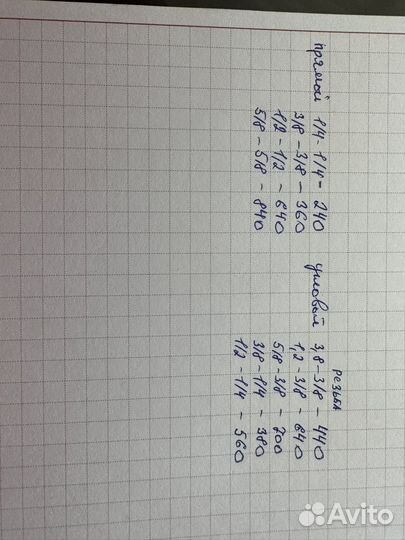 прямой 1/4 - 1/4 = 240
3/8 - 3/8 - 360
1/2 - 1/2 - 640
5/8 - 5/8 - 840
резьба
угловый 3,8 - 3/8 - 440
1,2 - 3/8 - 640
5/8 - 3/8 - 200
3/8 - 1/4 - 380
1/2 - 1/4 - 560
Avito